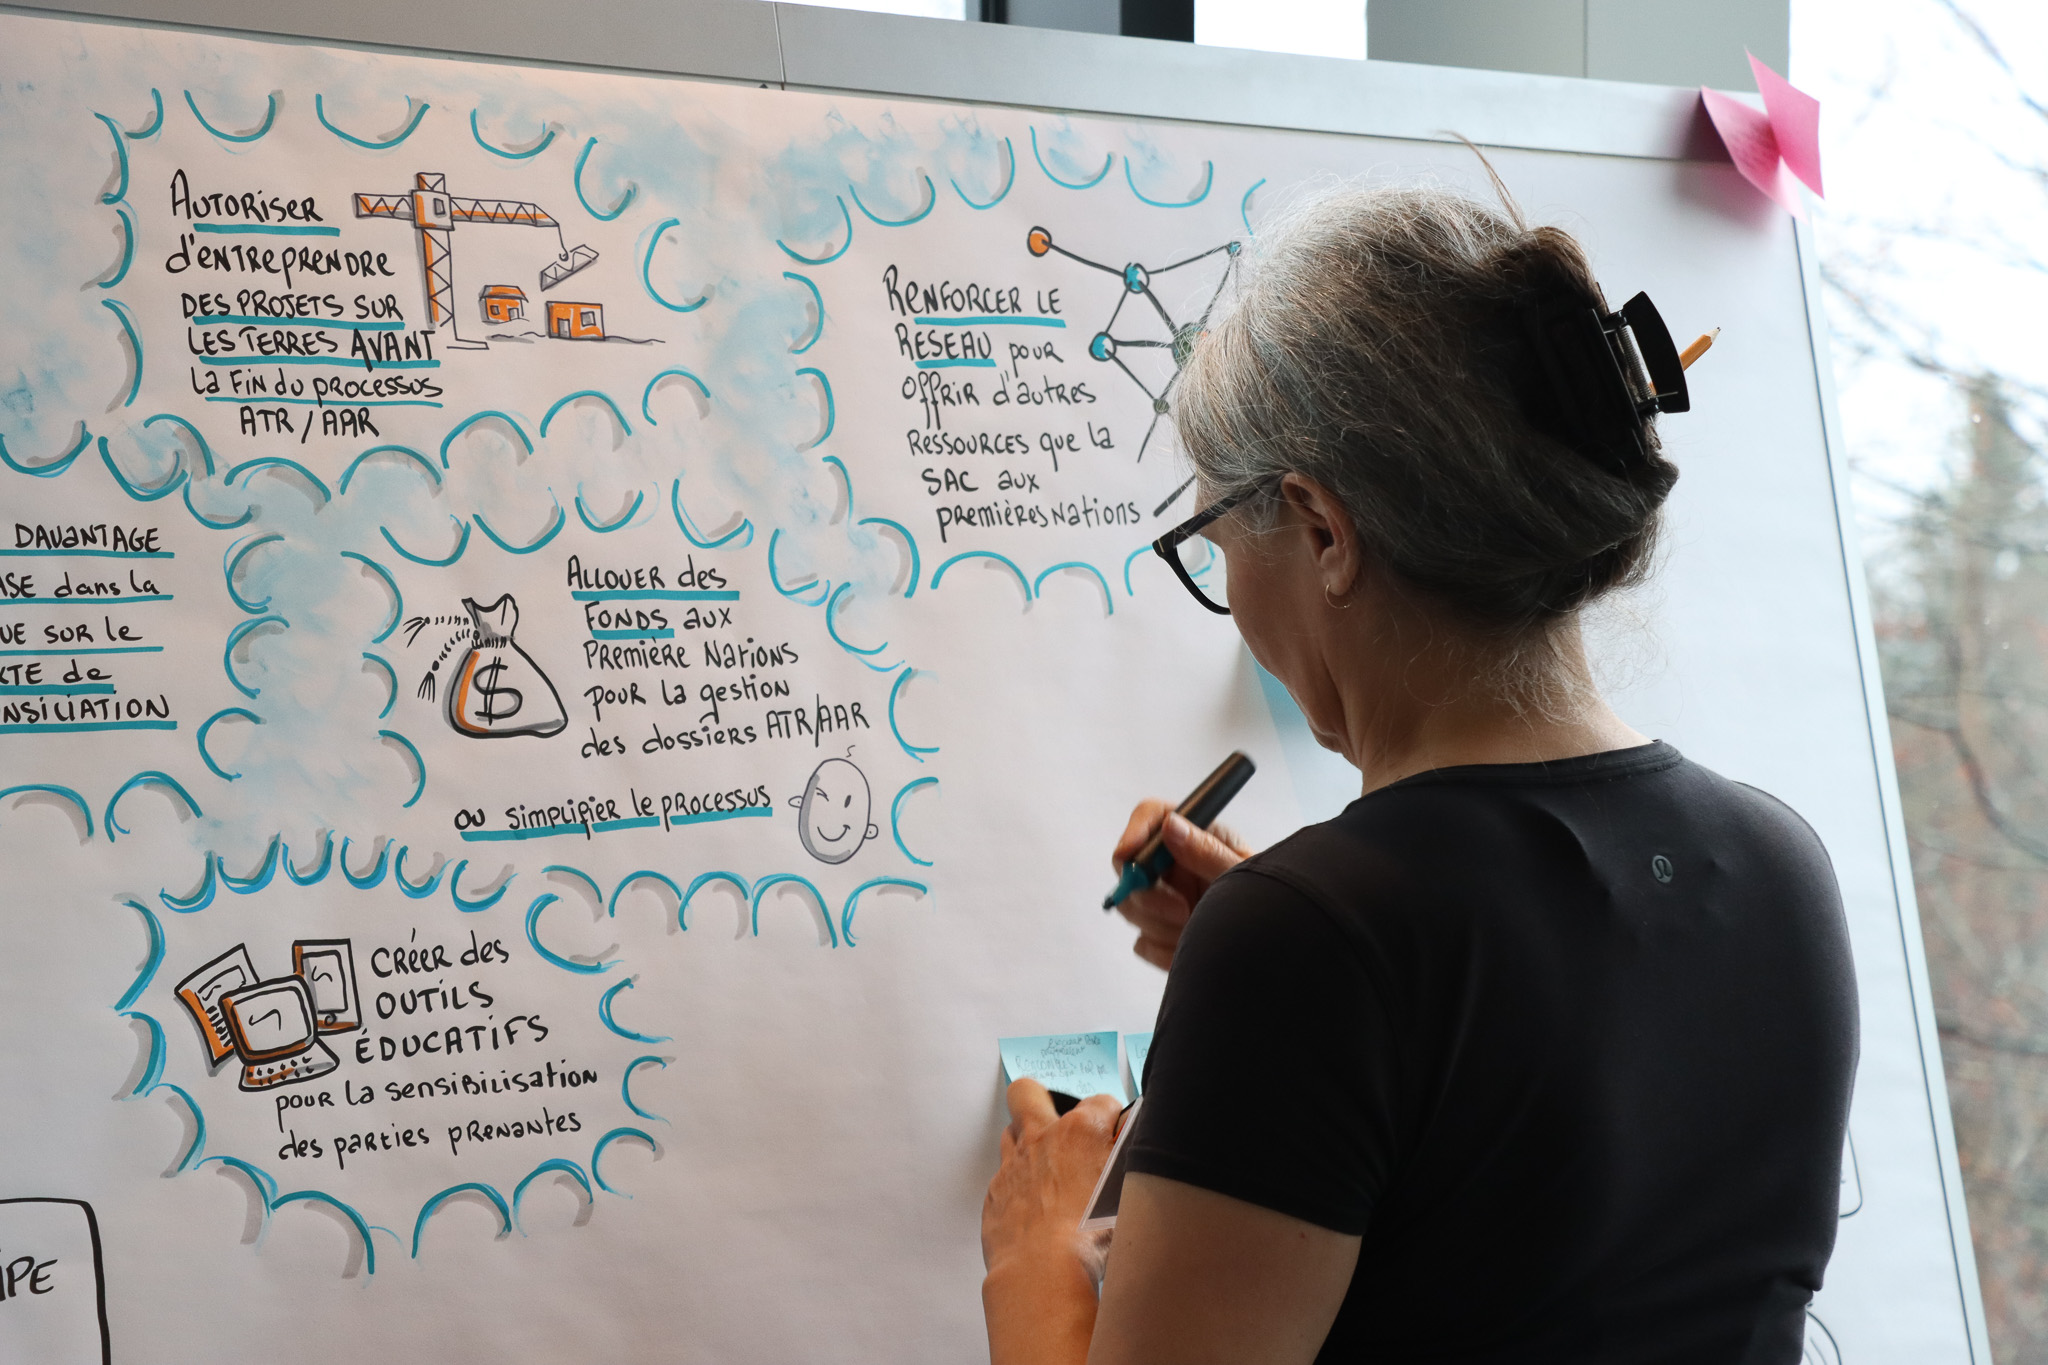 AUTORISER
d'ENTREPRENDRE
DES PROJETS SUR
LES TERRES AVANT
La FIN DU PROCESSUS
ATR / AAR
RENFORCER LE
RESEAU POUR
OFFRIR d'autres
RESSOURCES que la
SAC aux
PREMIÈRES Nations
DAVANTAGE
dans la
SUR le
de
ALLOUER des
FONDS aux
PREMIÈRE NATIONS
POUR la gestion
des dossiers ATR/AAR
ou simplifier le processus
$
CRÉER des
OUTILS
ÉDUCATIFS
pour la sensibilisation
des parties prenantes